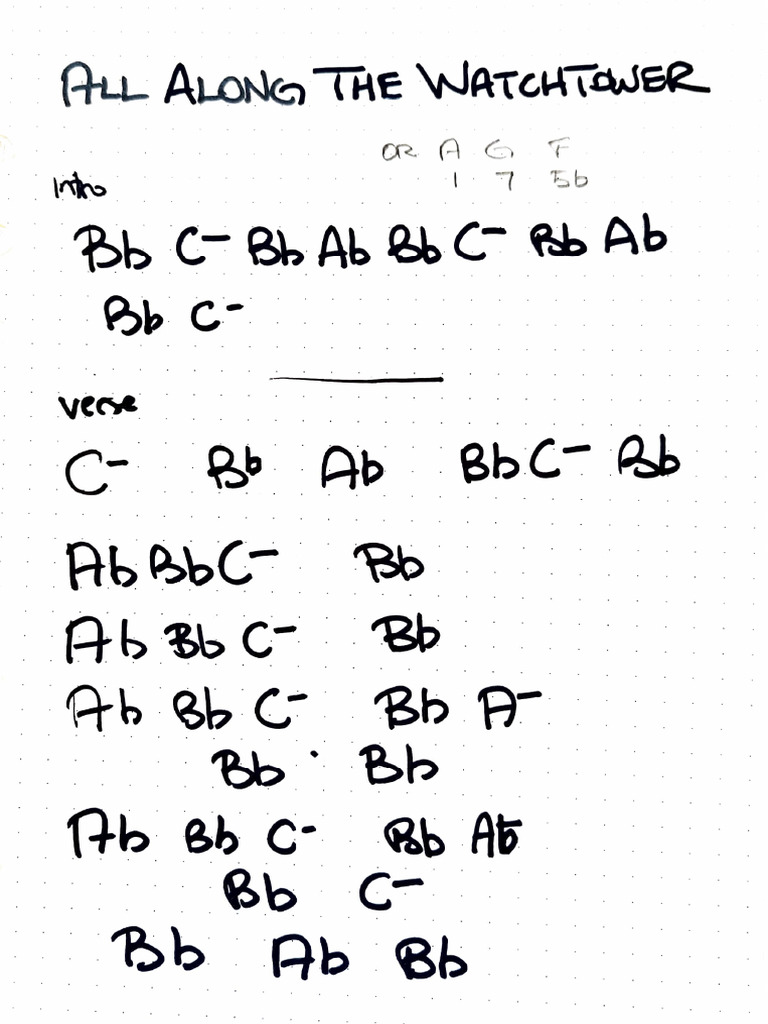 ALL ALONG THE WATCHTOWER
OR A G F
1 7 5b
Intro
Bb C- Bb Ab Bb C- Bb Ab
Bb C-
verse
C- Bb Ab Bb C- Bb
Ab Bb C- Bb
Ab Bb C- Bb
Ab Bb C- Bb A-
Bb · Bb
Ab Bb C- Bb Ab
Bb C-
Bb Ab Bb